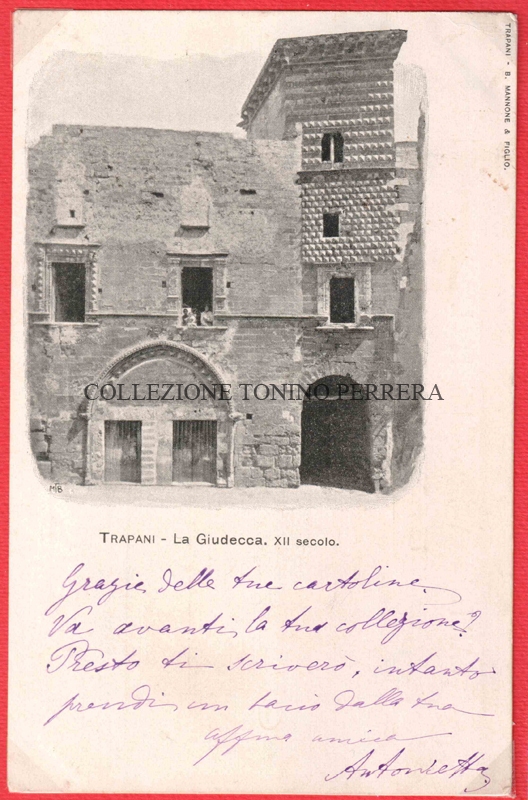 TRAPANI - B. MANNONE & FIGLIO.
COLLEZIONE TONINO PERRERA
TRAPANI - La Giudecca. XII secolo.
Grazie delle tue cartoline.
Va avanti la tua collezione?
Presto ti scriverò, intanto
prendi un bacio dalla tua
affma amica
Antonietta